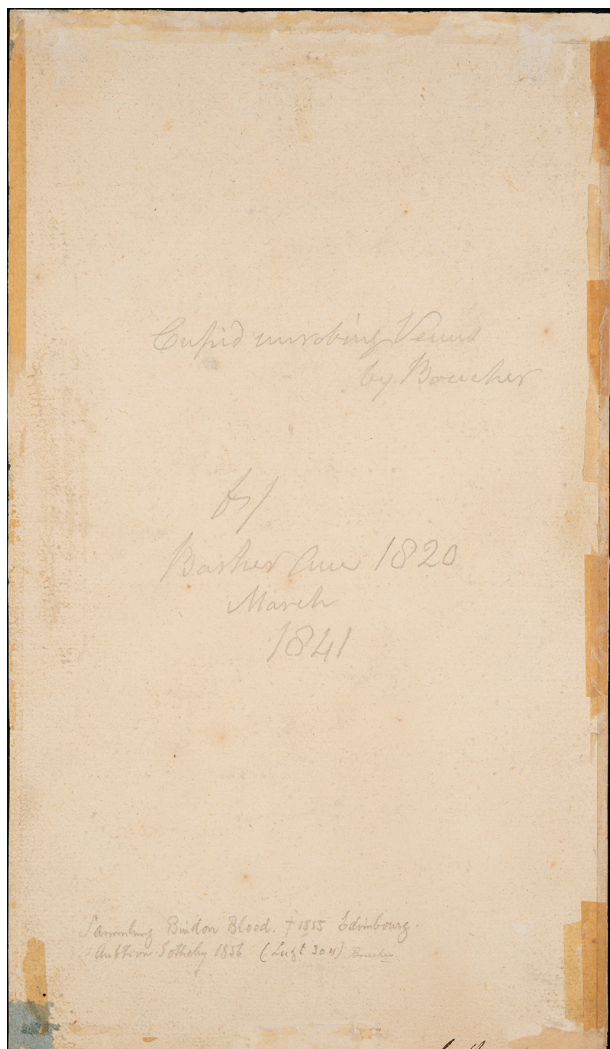 Cupid unrobing Venus
by Boucher
Barker 1820
March
1841
Sammlung Bindon Blood. † 1855 Edimbourg.
Auktion Sotheby 1856 (Lugt 3011) Boucher